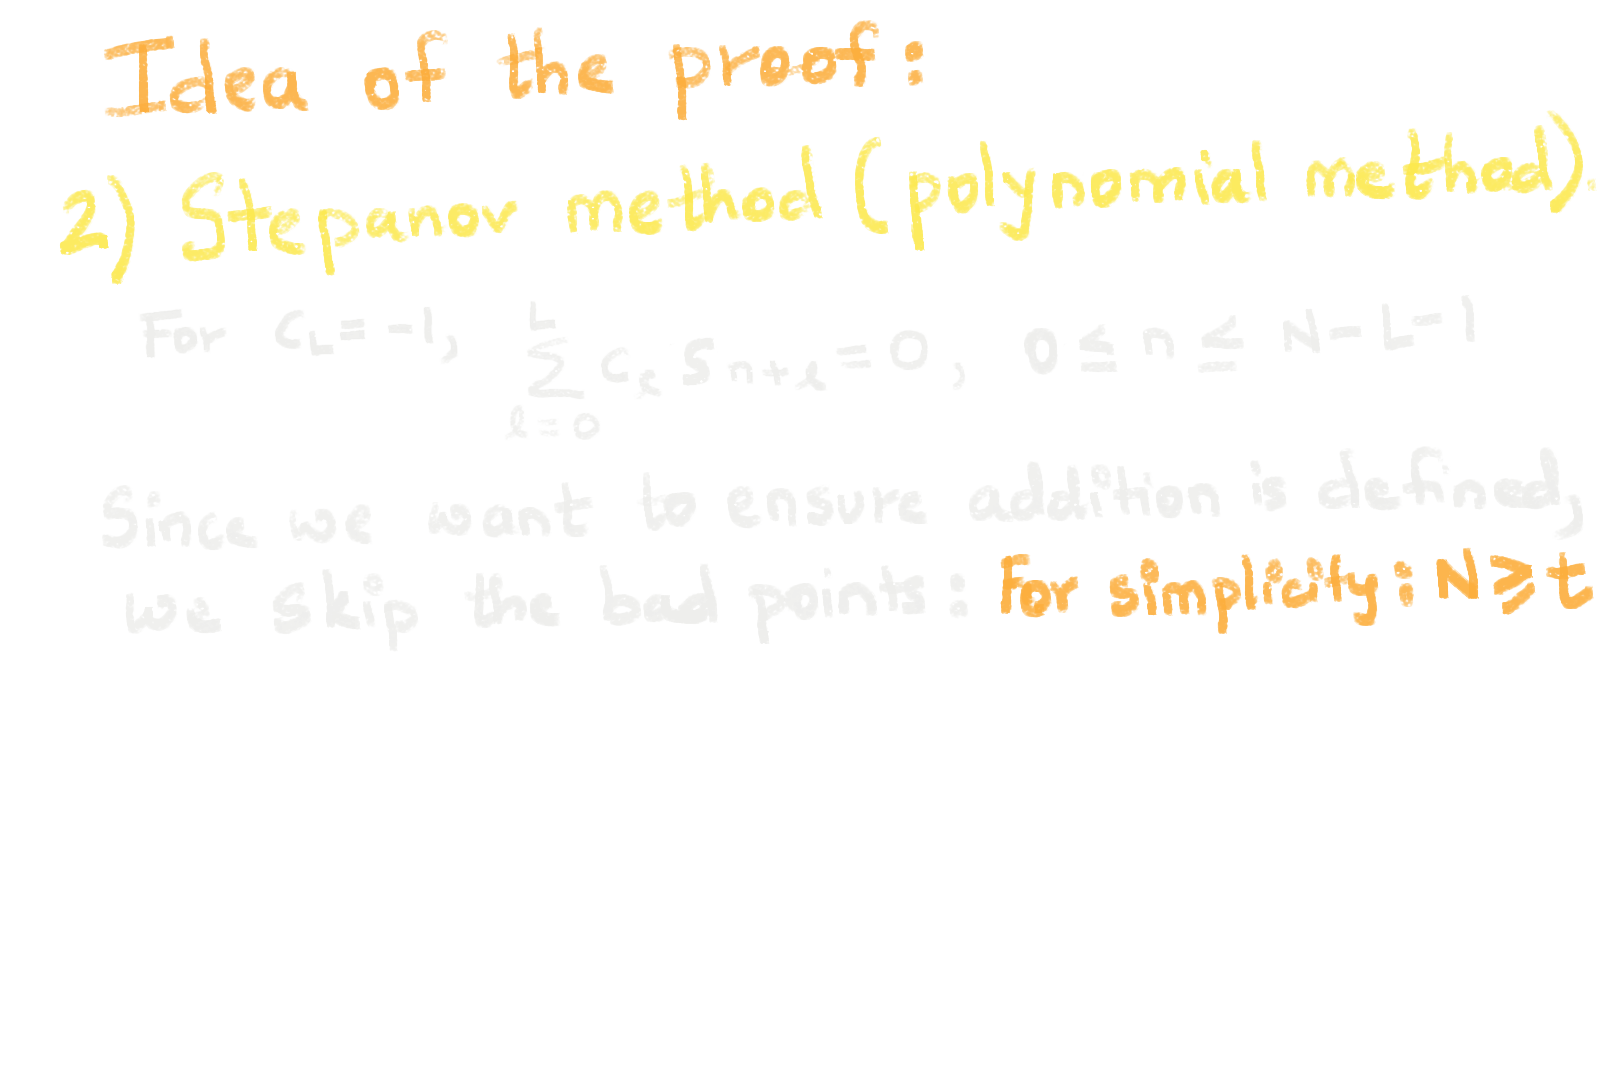 Idea of the proof:
2) Stepanov method (polynomial method).
For C_L = -1, \sum_{l=0}^{L} c_l s_{n+l} = 0, 0 ≤ n ≤ N-L-1
Since we want to ensure addition is defined,
we skip the bad points: For simplicity: N ⩾ t